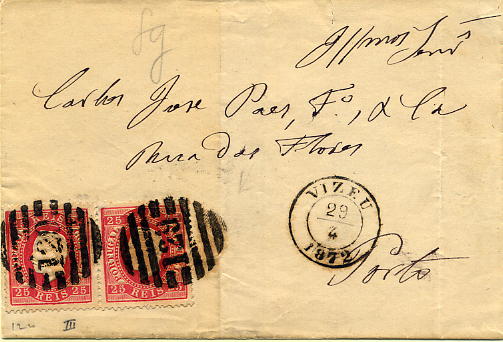 Illmos Senrs
Carlos Jose Paes, Fo, & Ca
Rua das Flores
Porto
VIZEU
29
4
1872
PORTUGAL
25 REIS 25
25
REIS
III